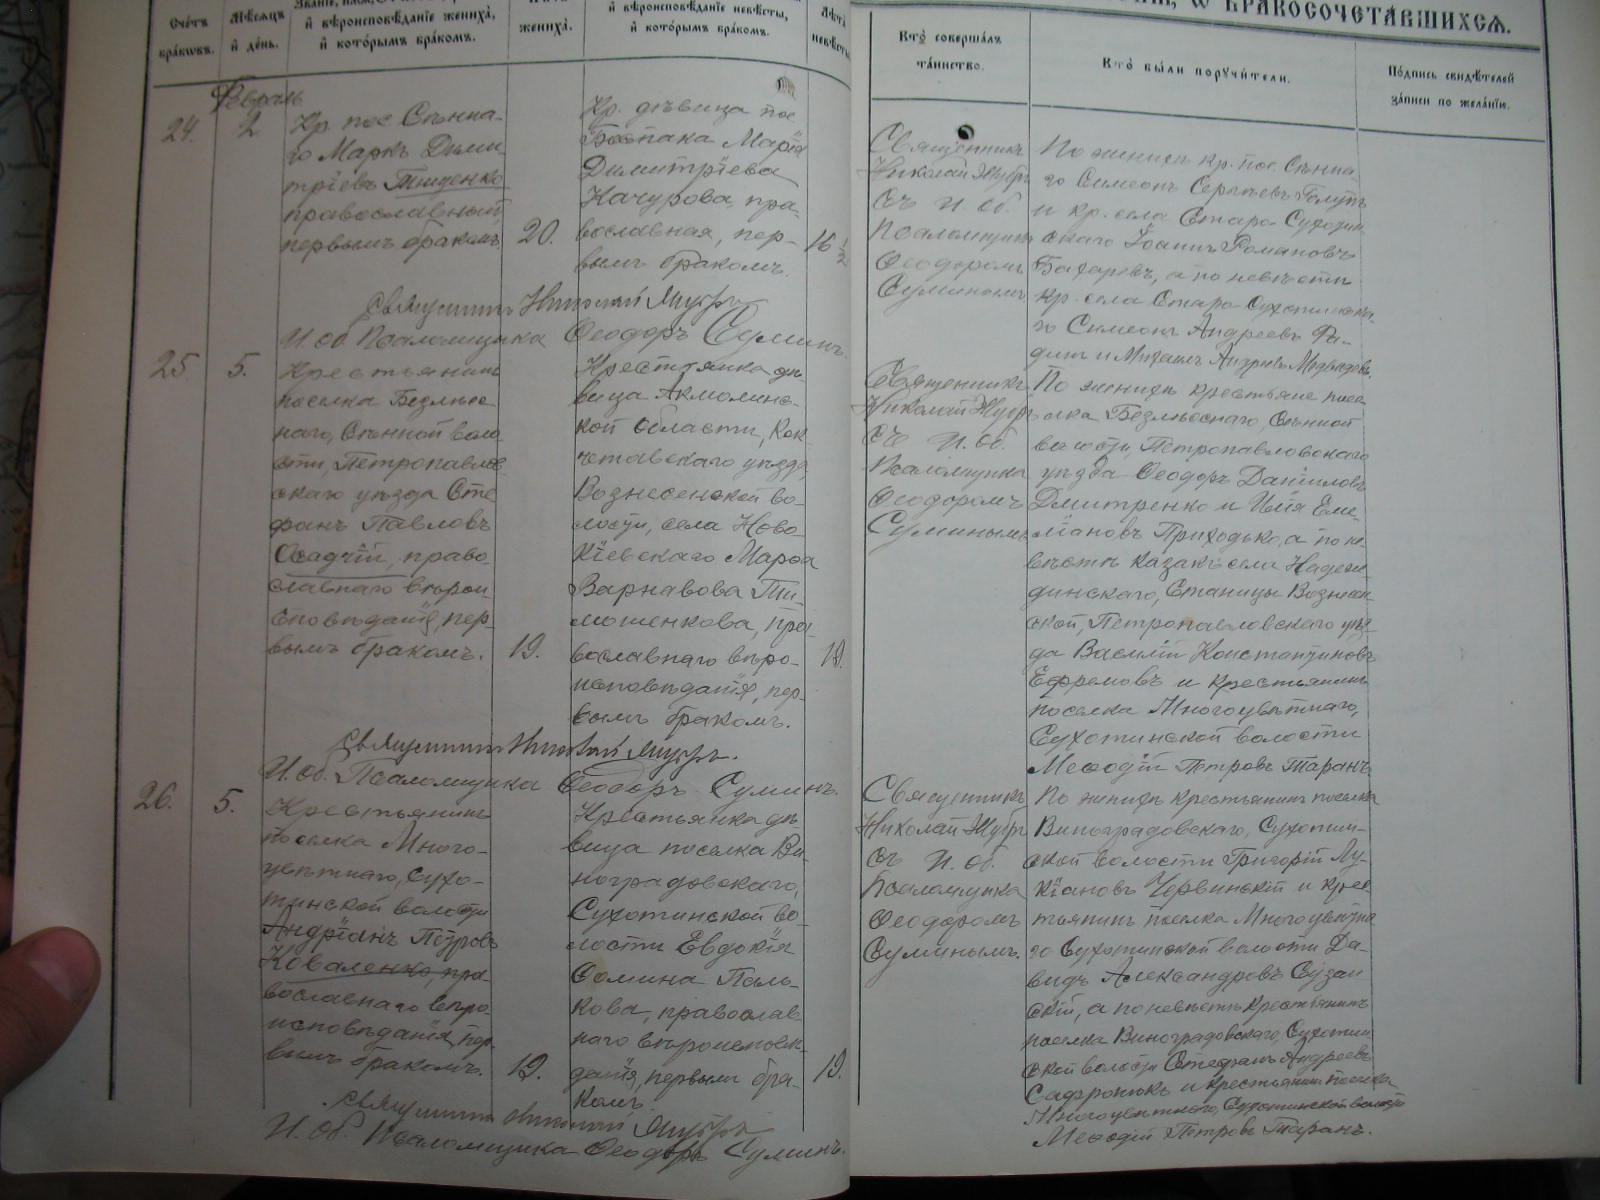 Счетъ браковъ.
Мѣсяцъ и день.
и вѣроисповѣданіе жениха,
и которымъ бракомъ.
жениха.
и вѣроисповѣданіе невѣсты,
и которымъ бракомъ.
Лѣта невѣсты
о бракосочетавшихся.
Кто совершалъ таинство.
Кто были поручители.
Подпись свидѣтелей записи по желанію.
Февраль
24.
2
Кр. пос. Сѣнна-
го Маркъ Дими-
тріевъ Тищенко
православный,
первымъ бракомъ,
20.
Кр. дѣвица пос.
Марія
Димитріева
Качурова, пра-
вославная, пер-
вымъ бракомъ.
16 1/2
Священникъ
Николай
съ И. Об.
Псаломщика
Ѳеодоромъ
Суминымъ
По женихѣ кр. пос. Сѣнна-
го Симеонъ Сергѣевъ
и кр. села Старо-Сухотин-
скаго Іоаннъ Романовъ
а по невѣстѣ
кр. села Старо-Сухотинска-
го Симеонъ Андреевъ
и Михаилъ Андреевъ
Священникъ Николай
И. Об. Псаломщика Ѳеодоръ Суминъ.
25.
5.
Крестьянинъ
поселка Безлѣс-
наго, Сѣнной воло-
сти, Петропавлов-
скаго уѣзда Сте-
фанъ Павловъ
Осадчій, право-
славнаго вѣрои-
сповѣданія, пер-
вымъ бракомъ.
19.
Крестьянка дѣ-
вица Акмолинс-
кой области, Кок-
четавскаго уѣзда,
Вознесенской во-
лости, села Ново-
Кіевскаго Марѳа
Варнавова Ти-
мошенкова, пра-
вославнаго вѣро-
исповѣданія, пер-
вымъ бракомъ.
19.
Священникъ
Николай
съ И. Об.
Псаломщика
Ѳеодоромъ
Суминымъ
По женихѣ крестьяне посе-
лка Безлѣснаго, Сѣнной
волости, Петропавловскаго
уѣзда Ѳеодоръ Даніиловъ
Дмитренко и Илія Еме-
ліановъ Приходько, а по не-
вѣстѣ казакъ села Надеж-
динскаго, Станицы Вознесен-
ской, Петропавловскаго уѣз-
да Василій Константиновъ
Ефремовъ и крестьянинъ
поселка Многоцвѣтнаго,
Сухотинской волости
Меѳодій Петровъ Таранъ.
Священникъ Николай
И. Об. Псаломщика Ѳеодоръ Суминъ.
26.
5.
Крестьянинъ
поселка Много-
цвѣтнаго, Сухо-
тинской волости
Андріанъ Петровъ
Коваленко, пра-
вославнаго вѣро-
исповѣданія, пер-
вымъ бракомъ.
19.
Крестьянка дѣ-
вица поселка Ви-
ноградовскаго,
Сухотинской во-
лости Евдокія
Ѳомина Поль-
кова, православ-
наго вѣроисповѣ-
данія, первымъ бра-
комъ.
19.
Священникъ
Николай
съ И. Об.
Псаломщика
Ѳеодоромъ
Суминымъ.
По женихѣ крестьянинъ поселка
Виноградовскаго, Сухотин-
ской волости Григорій Лу-
кіановъ Червинскій и крес-
тьянинъ поселка Многоцвѣтна-
го Сухотинской волости Да-
видъ Александровъ Сузан-
скій, а по невѣстѣ крестьянинъ
поселка Виноградовскаго, Сухотин-
ской волости Стефанъ Андреевъ
Сафронюкъ и крестьянинъ поселка
Многоцвѣтнаго, Сухотинской волости
Меѳодій Петровъ Таранъ.
Священникъ Николай
И. Об. Псаломщика Ѳеодоръ Суминъ.